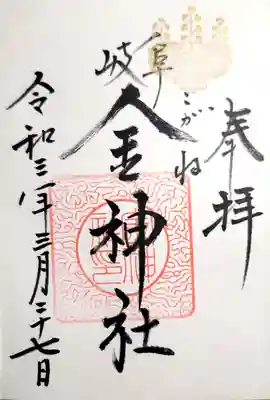 奉拝
岐阜
こがね
金神社
令和三年三月二十七日